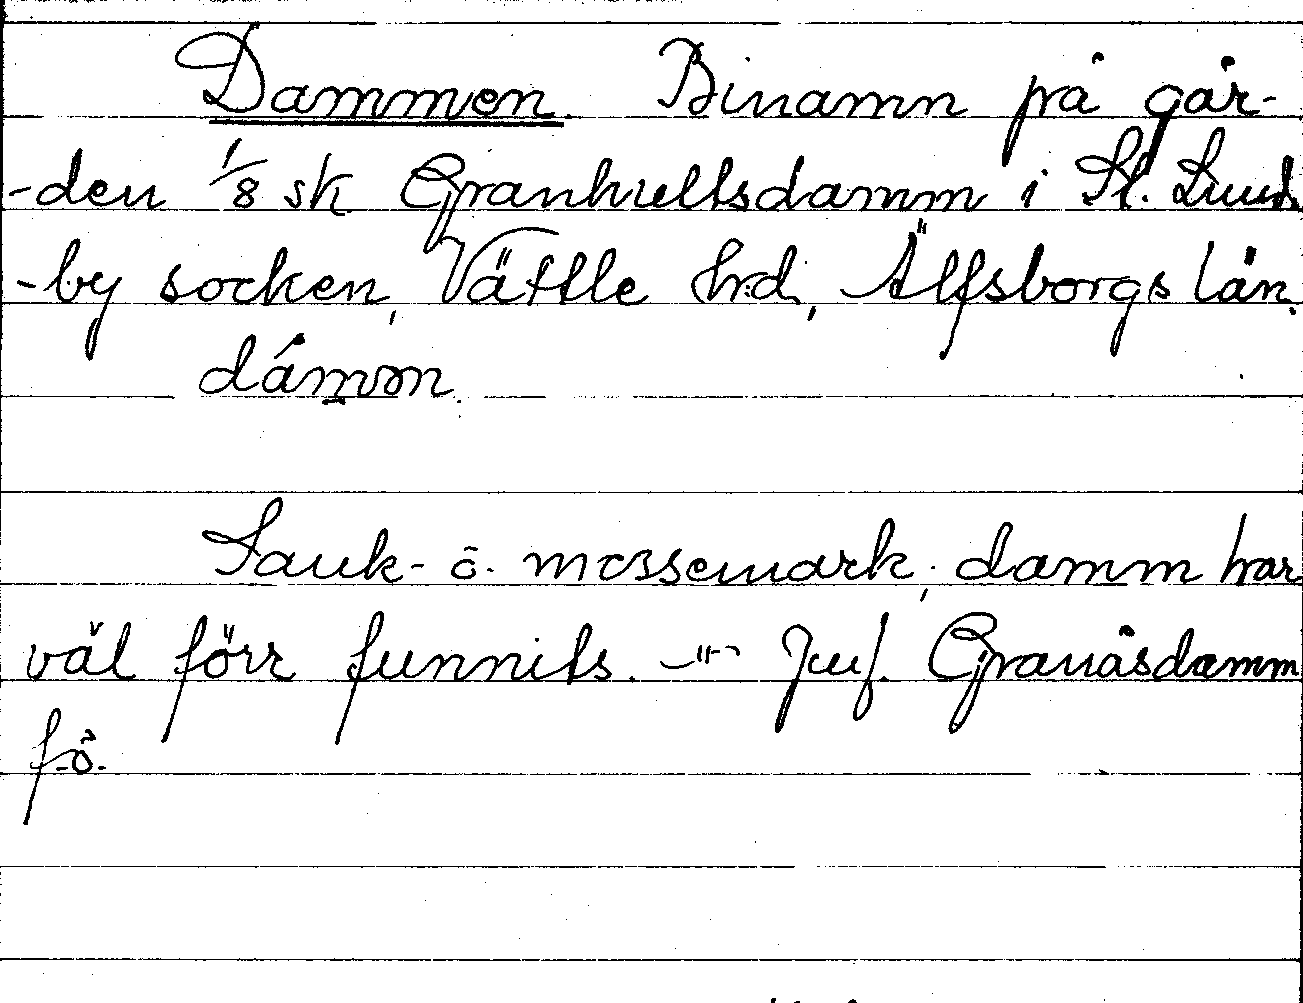 Dammen. Binamn på går-
-den 1/8 sk Granhultsdamm i St. Lund
-by socken, Vättle hrd, Älfsborgs län.
dámɷn.
Sank- o. mossemark; damm har
väl förr funnits. -"- Jmf. Granåsdamm
f.ö.